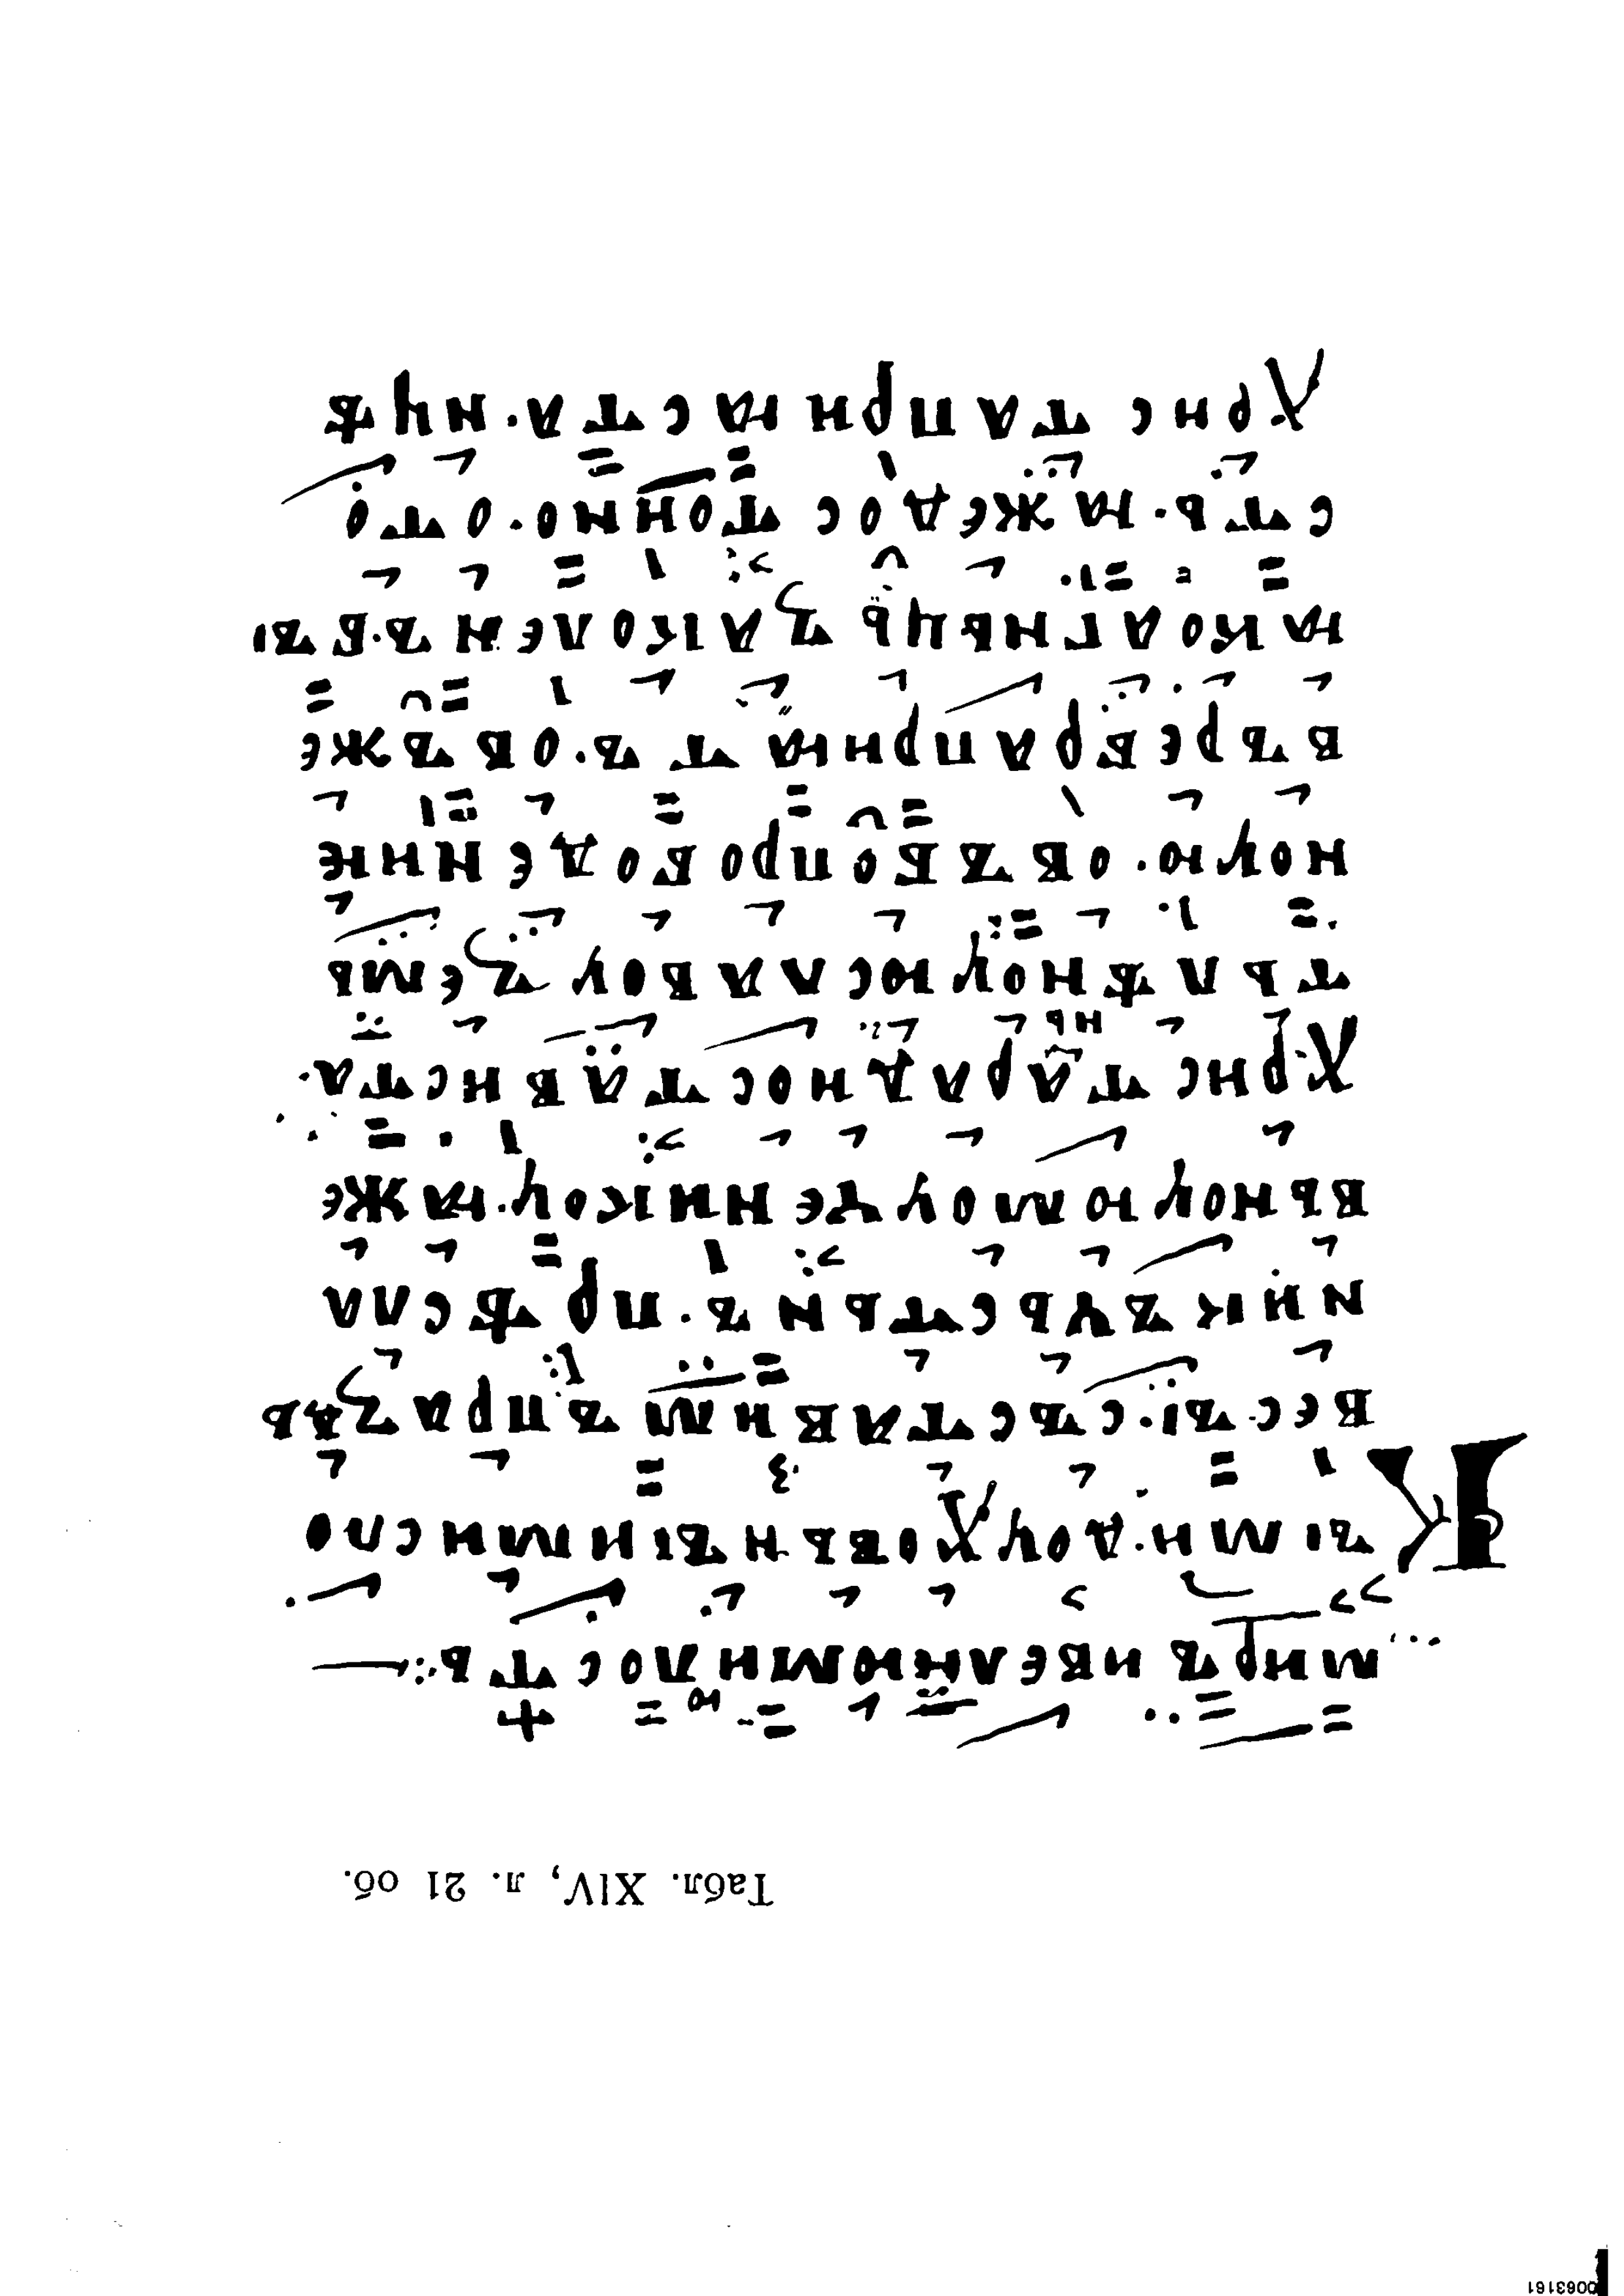 Табл. XIV, л. 21 об.
миръивелиюмилость:—
Къıми·доуховьнъıимисло
весъı·съставимъпраздь
никъчьстьнъ·прѣсла
вьноуюмоученикоу·ꙗже
Христарадиостависта·
нь
тьлѣноуюславоуземь
ноую·овъбопрободениѥ
въребраприꙗтъ·овъже
ꙗкоагньцьзаколенъ·бъı
сть·ꙗжедостоино·ото
Христаприꙗста·ицѣ
0063161